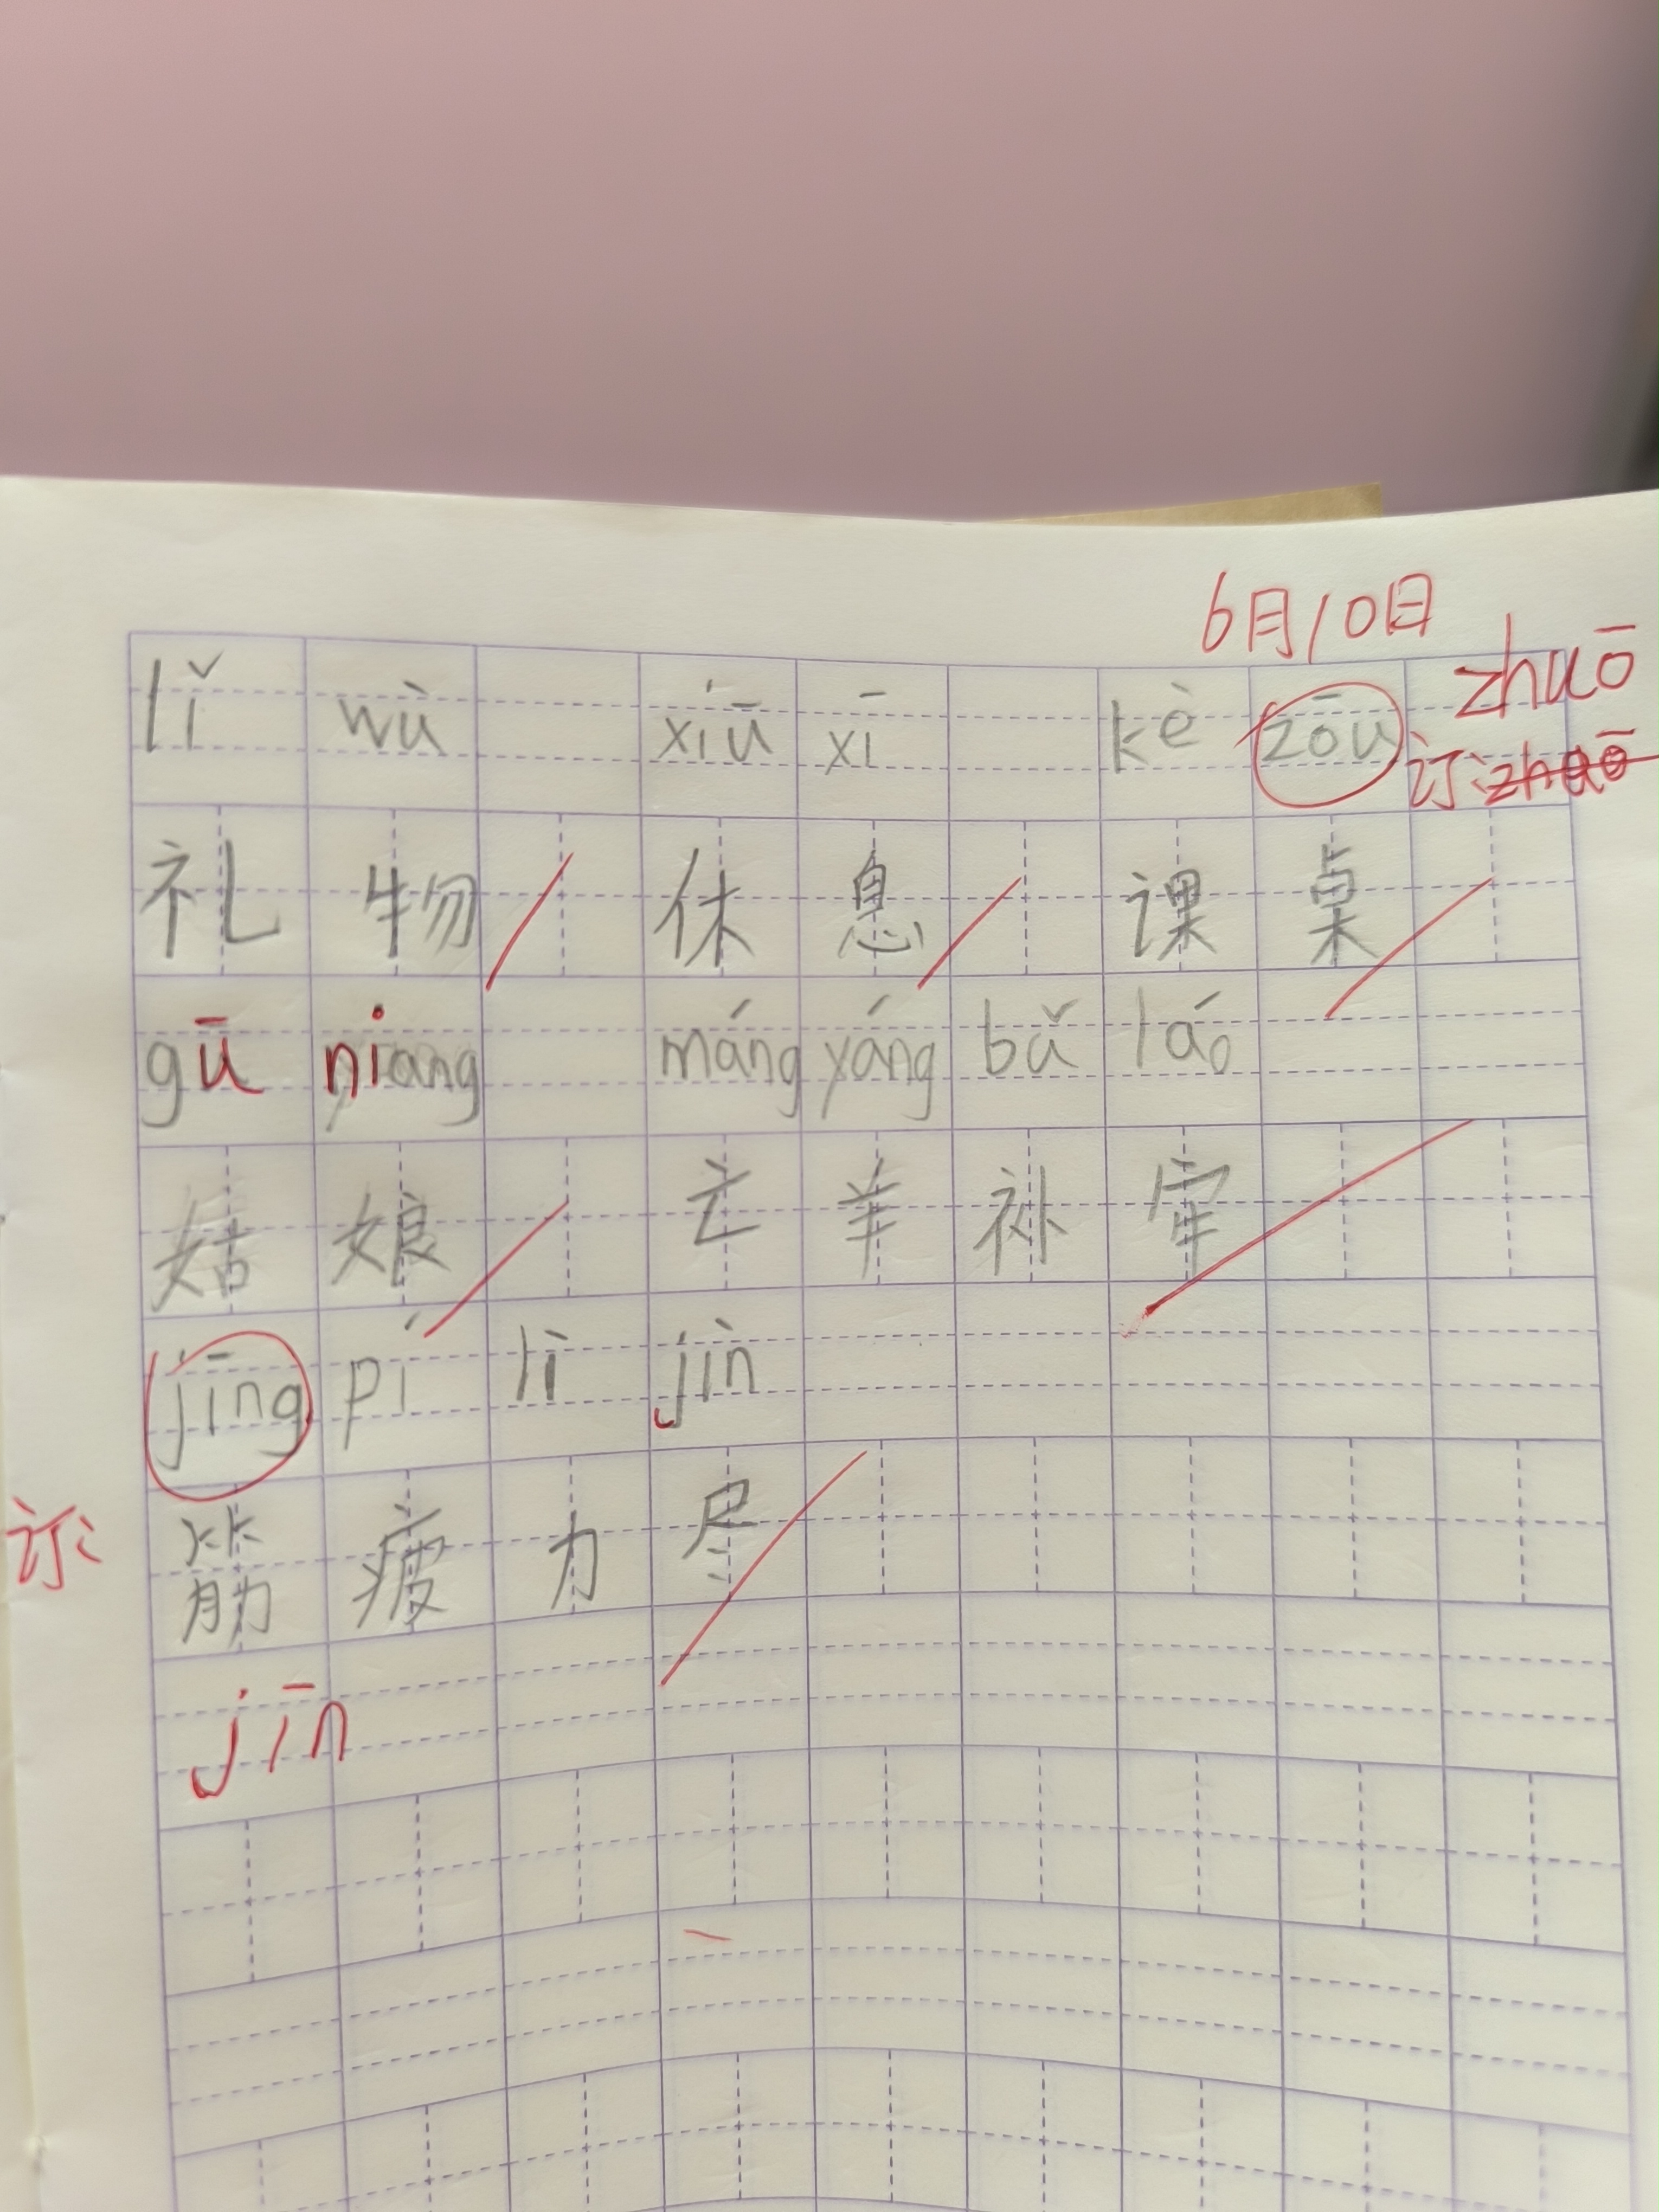 6月10日
zhuō
lǐ wù xiū xi kè zōu 订: zhuō
礼物 休息 课桌
gū niang máng yáng bǔ láo
姑娘 亡羊补牢
jīng pí lì jìn
订: 筋疲力尽
jīn